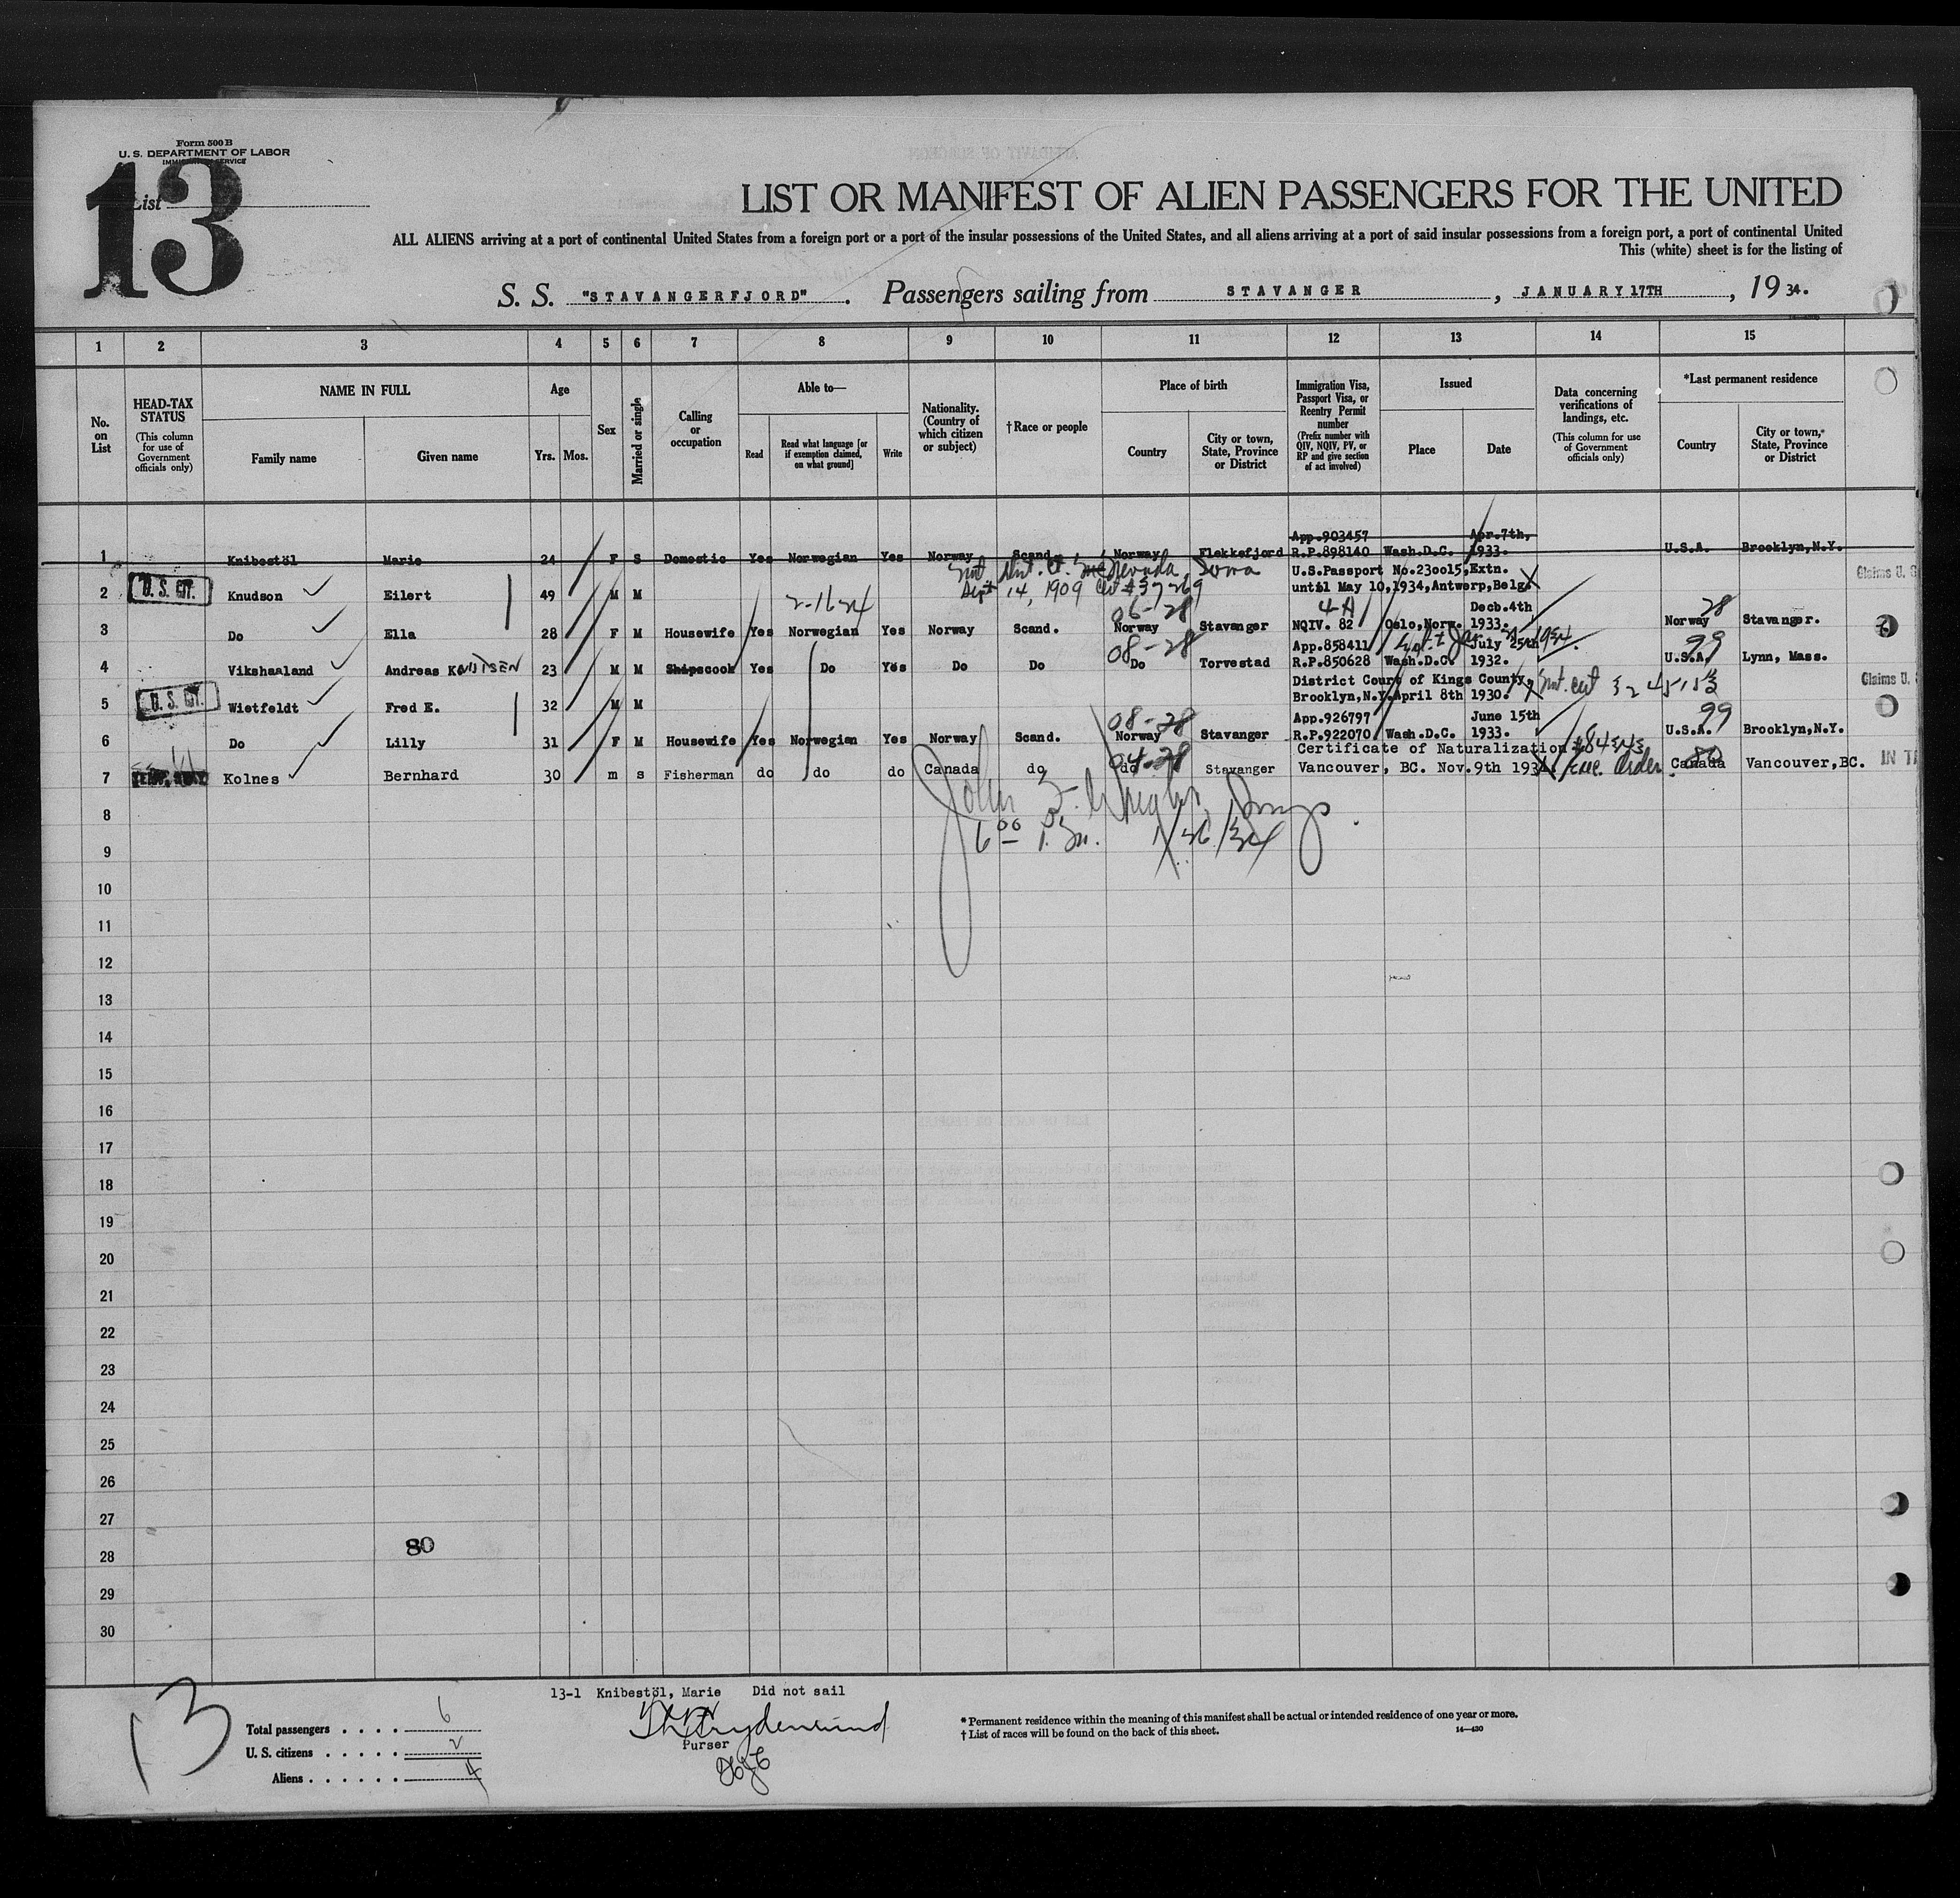 Form 500 B
U. S. DEPARTMENT OF LABOR
IMMIGRATION SERVICE
List 13
LIST OR MANIFEST OF ALIEN PASSENGERS FOR THE UNITED
ALL ALIENS arriving at a port of continental United States from a foreign port or a port of the insular possessions of the United States, and all aliens arriving at a port of said insular possessions from a foreign port, a port of continental United
This (white) sheet is for the listing of
S. S. "STAVANGERFJORD". Passengers sailing from STAVANGER, JANUARY 17TH, 1934.
1 2 3 4 5 6 7 8 9 10 11 12 13 14 15
No. on List
HEAD-TAX STATUS (This column for use of Government officials only)
NAME IN FULL
Family name Given name
Age
Yrs. Mos.
Sex
Married or single
Calling or occupation
Able to—
Read Read what language [or if exemption claimed, on what ground] Write
Nationality. (Country of which citizen or subject)
†Race or people
Place of birth
Country City or town, State, Province or District
Immigration Visa, Passport Visa, or Reentry Permit number (Prefix number with QIV, NQIV, PV, or RP and give section of act involved)
Issued
Place Date
Data concerning verifications of landings, etc. (This column for use of Government officials only)
*Last permanent residence
Country City or town, State, Province or District
App.903457 Apr.7th,
1 Knibestöl Marie 24 F S Domestic Yes Norwegian Yes Norway Scand. Norway Flekkefjord R.P.898140 Wash.D.C. 1933. U.S.A. Brooklyn,N.Y.
Nevada, Iowa U.S.Passport No.230015,Extn.
U. S. CIT. Sept 14, 1909 until May 10,1934,Antwerp,Belg. Claims U. S
2 Knudson Eilert 49 M M
2-1624 06-28 4-A Decb.4th 28
3 Do Ella 28 F M Housewife Yes Norwegian Yes Norway Scand. Norway Stavanger NQIV. 82 Oslo,Norw. 1933. Norway Stavanger.
08-28 App.858411 July 25th 99
4 Vikshaaland Andreas KNUTSEN 23 M M Shipscook Yes Do Yes Do Do Do Torvestad R.P.850628 Wash.D.C. 1932. U.S.A. Lynn, Mass.
District Court of Kings County, Claims U.
U. S. CIT.
5 Wietfeldt Fred E. 32 M M Brooklyn,N.Y.April 8th 1930.
08-28 App.926797 June 15th 99
6 Do Lilly 31 F M Housewife Yes Norwegian Yes Norway Scand. Norway Stavanger R.P.922070 Wash.D.C. 1933. U.S.A. Brooklyn,N.Y.
04-28 Certificate of Naturalization 80
7 Kolnes Bernhard 30 m s Fisherman do do do Canada do do Stavanger Vancouver, BC. Nov.9th 1931. Canada Vancouver,BC. IN T
8
9
10
11
12
13
14
15
16
17
18
19
20
21
22
23
24
25
26
27
28 80
29
30
13
13-1 Knibestöl, Marie Did not sail
Total passengers . . . . 6
U. S. citizens . . . . . 2
Aliens . . . . . . 4
Purser
* Permanent residence within the meaning of this manifest shall be actual or intended residence of one year or more.
† List of races will be found on the back of this sheet.
14—430